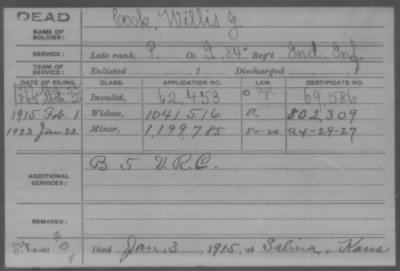 DEAD
NAME OF SOLDIER:
Cook, Willis J.
SERVICE:
Late rank, P. Co. I, 84" Reg't Ind. Inf.
TERM OF SERVICE:
Enlisted , 1 Discharged , 1
DATE OF FILING. CLASS. APPLICATION NO. LAW. CERTIFICATE NO.
1865 Invalid, 62,453 69,586
1915 Feb. 1 Widow, 1041,516 a. 802,309
1922 Jan 22 Minor, 1,199,785 a4-29-27
ADDITIONAL SERVICES:
B 5 V.R.C.
REMARKS:
Died Jan. 3, 1915, at Salina, Kans